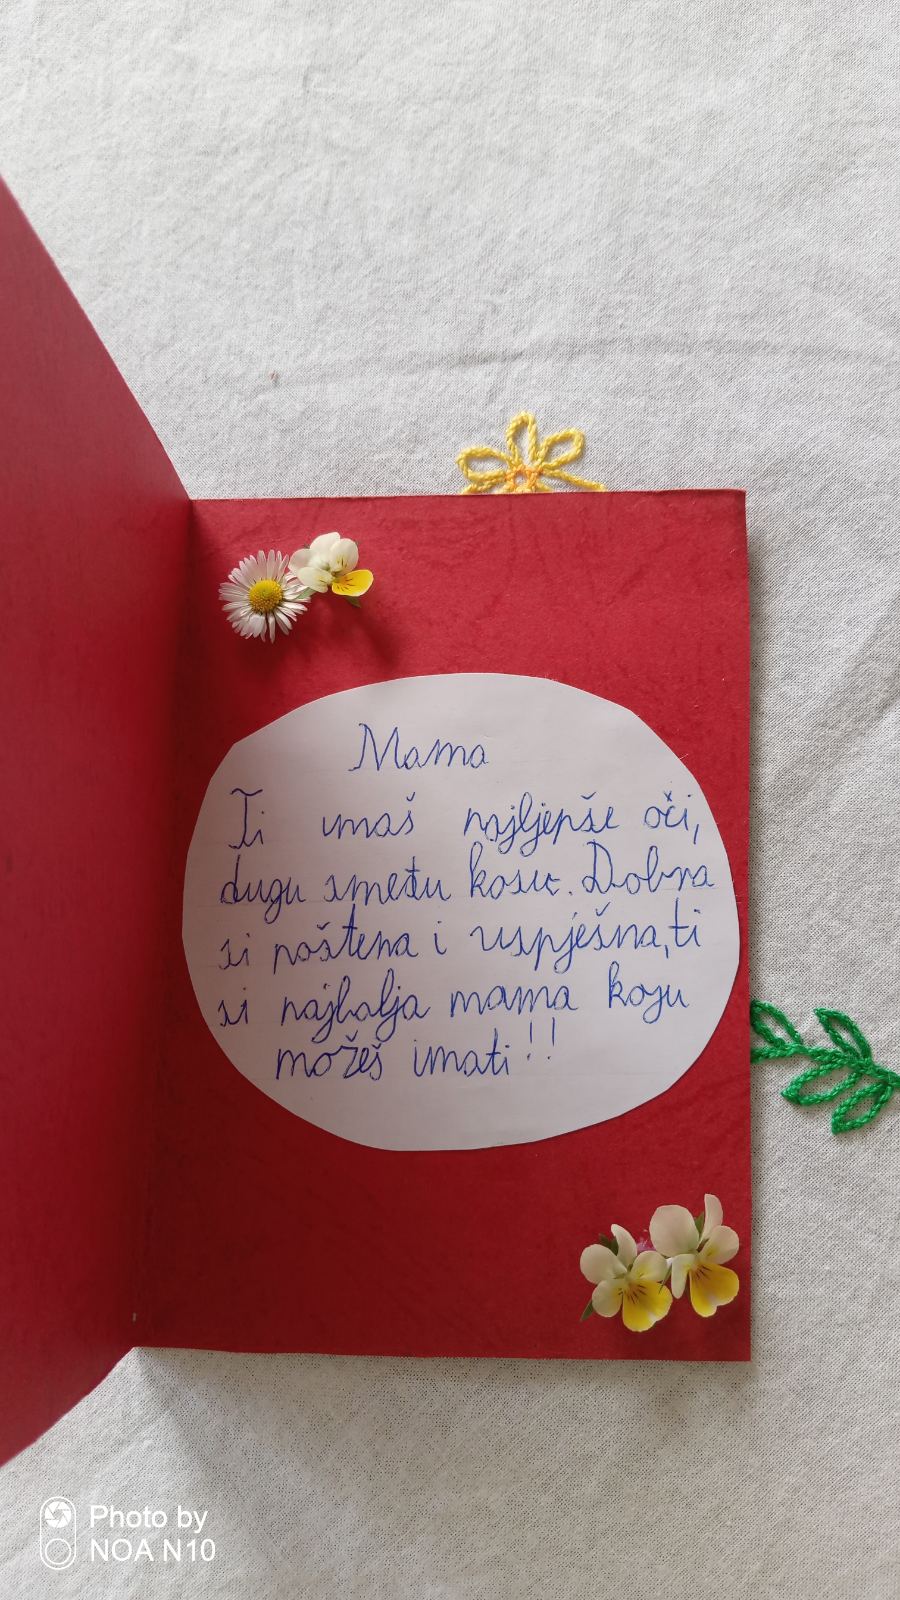 Mama
Ti imaš najljepše oči,
dugu smeđu kosu. Dobra
si poštena i uspješna, ti
si najbolja mama koju
možeš imati!!
Photo by
NOA N10